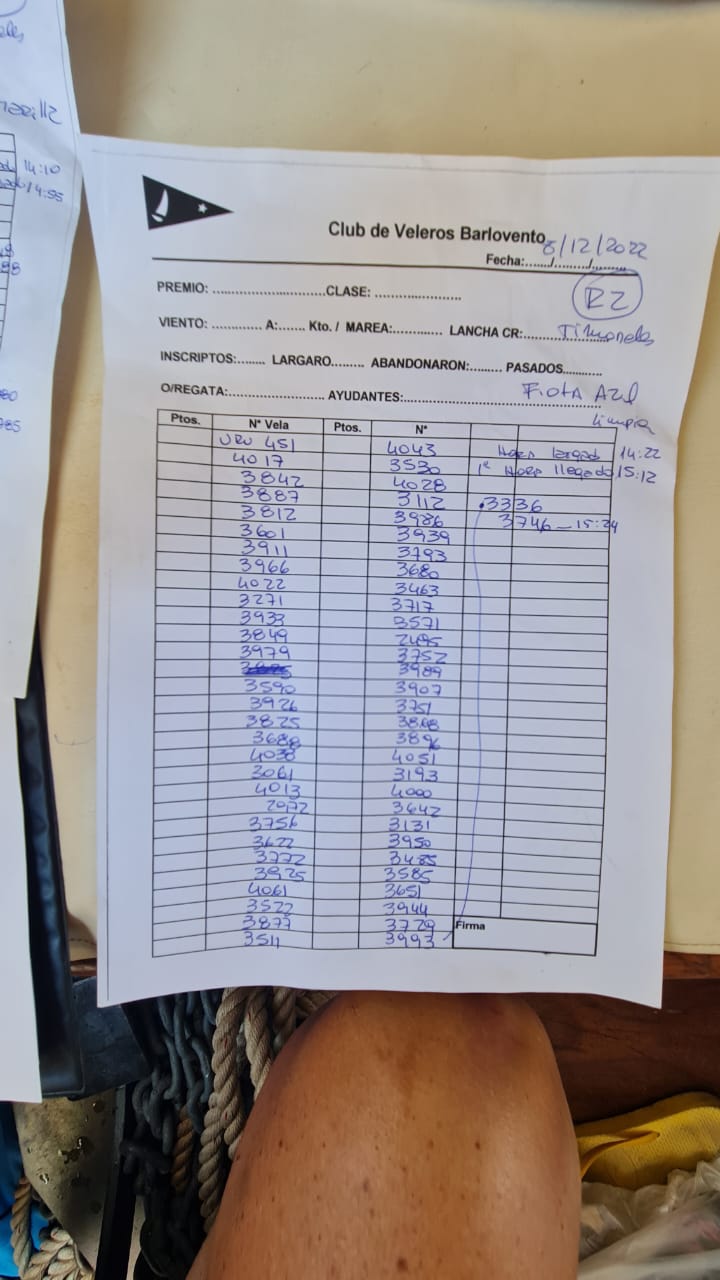 14:10
14:55
Club de Veleros Barlovento
Fecha:....../........./.........
8/12/2022
R2
PREMIO: ............................CLASE: ......................
VIENTO: ............. A:....... Kto. / MAREA:............. LANCHA CR:....................
Timoneles
INSCRIPTOS:........ LARGARO......... ABANDONARON:......... PASADOS...........
O/REGATA:........................ AYUDANTES:.............................................
Flota Azul
limpia
Ptos. N° Vela Ptos. N°
URU 451 4043 Hora largada 14:22
4017 3530 1er Hora llegado 15:12
3842 4028
3887 3112 .3336
3812 3986 3746 _ 15:24
3601 3939
3911 3793
3966 3680
4022 3463
3271 3717
3933 3571
3849 2495
3979 3752
3989
3590 3907
3926 3751
3825
3688 3896
4038 4051
3061 3193
4013 4000
2972 3642
3756 3131
3622 3950
3772 3485
3925 3585
4061 3651
3522 3944
3877 3729
3511 3993
Firma